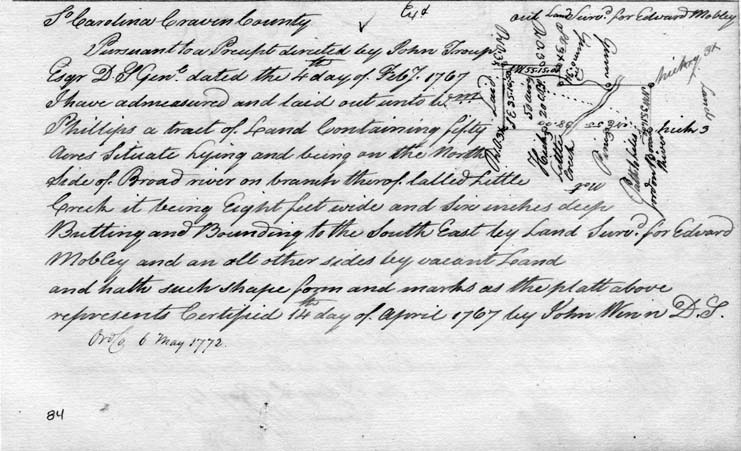 So Carolina Craven County
out Land Survd. for Edward Mobley
Pursuant to a Precept directed by John Troup
Esqr D S Genl. dated the 4th day of Feby. 1767
I have admeasured and laid out unto Wm
Phillips a tract of Land Containing fifty
Acres Situate Lying and being on the North
Side of Broad river on branch therof. Called Little
Creek it being Eight feet wide and Six inches deep
Butting and Bounding to the South East by Land Survd. for Edward
Mobley and on all other sides by vacant Land
and hath such shape form and marks as the platt above
represents Certified 14th day of April 1767 by John Winn D. S.
6 May 1772.
Little
Creek
hickory
Land
hick 3
84